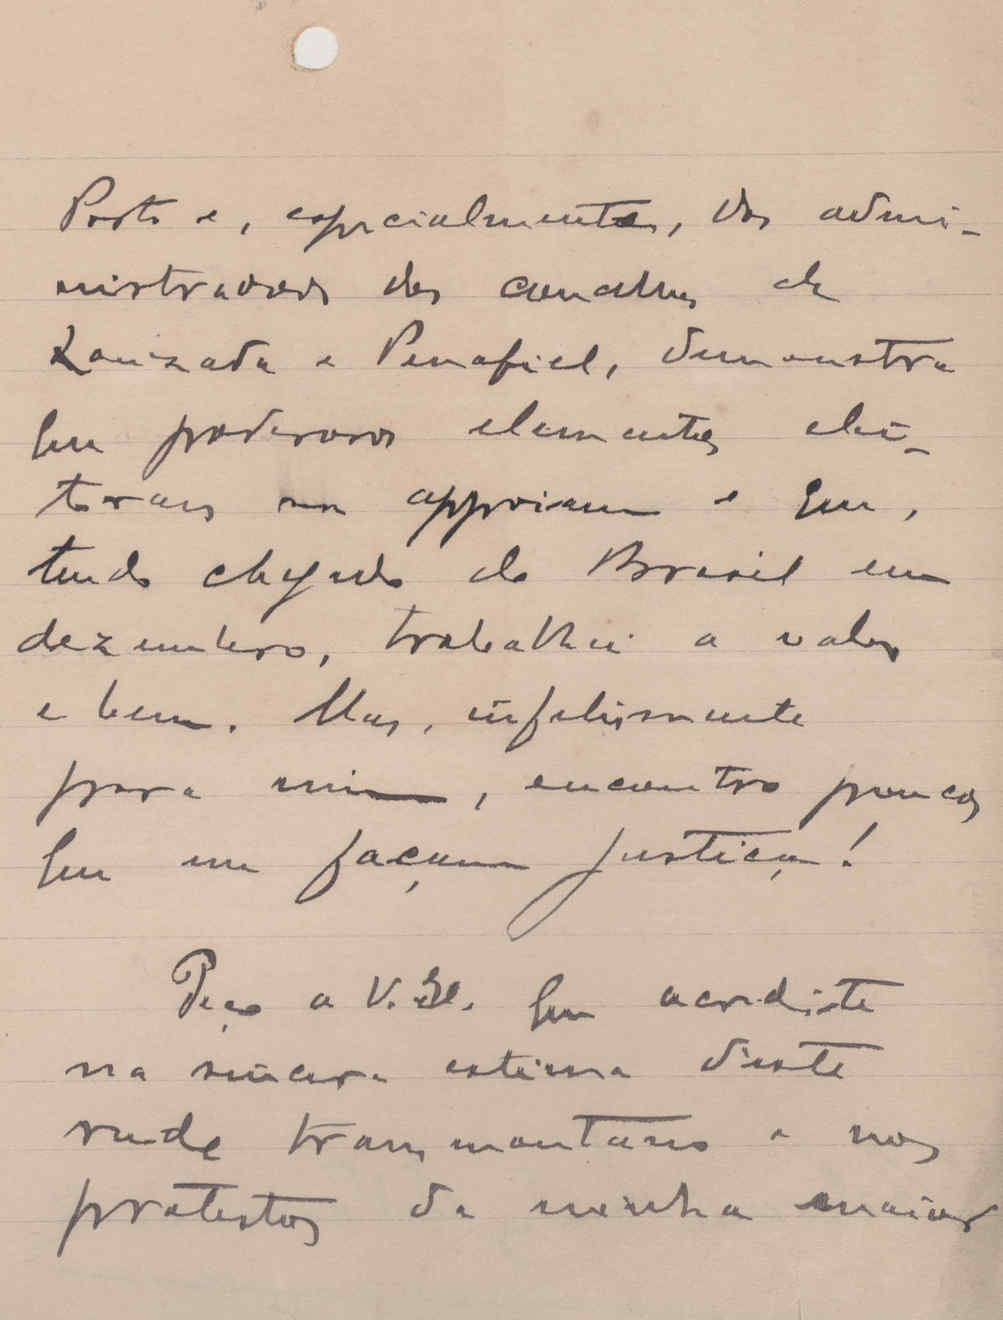 Porto e, especialmente, dos admi-
nistradores dos concelhos de
Louzada e Penafiel, demonstra
que poderosos elementos elei-
toraes me appoiam e que,
tendo chegado do Brasil em
dezembro, trabalhei a valer
e bem. Mas, infelismente
para mim, encontro poucos
que me façam justiça!
Peço a V. Ex. que acredite
na sincera estima d'este
rude transmontano e nos
protestos da minha maior